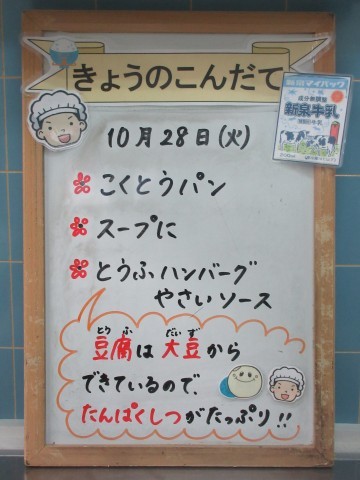 きょうのこんだて
新泉牛乳
10月28日(火)
こくとうパン
スープに
とうふハンバーグ
やさいソース
豆腐は大豆から
できているので、
たんぱくしつがたっぷり!!